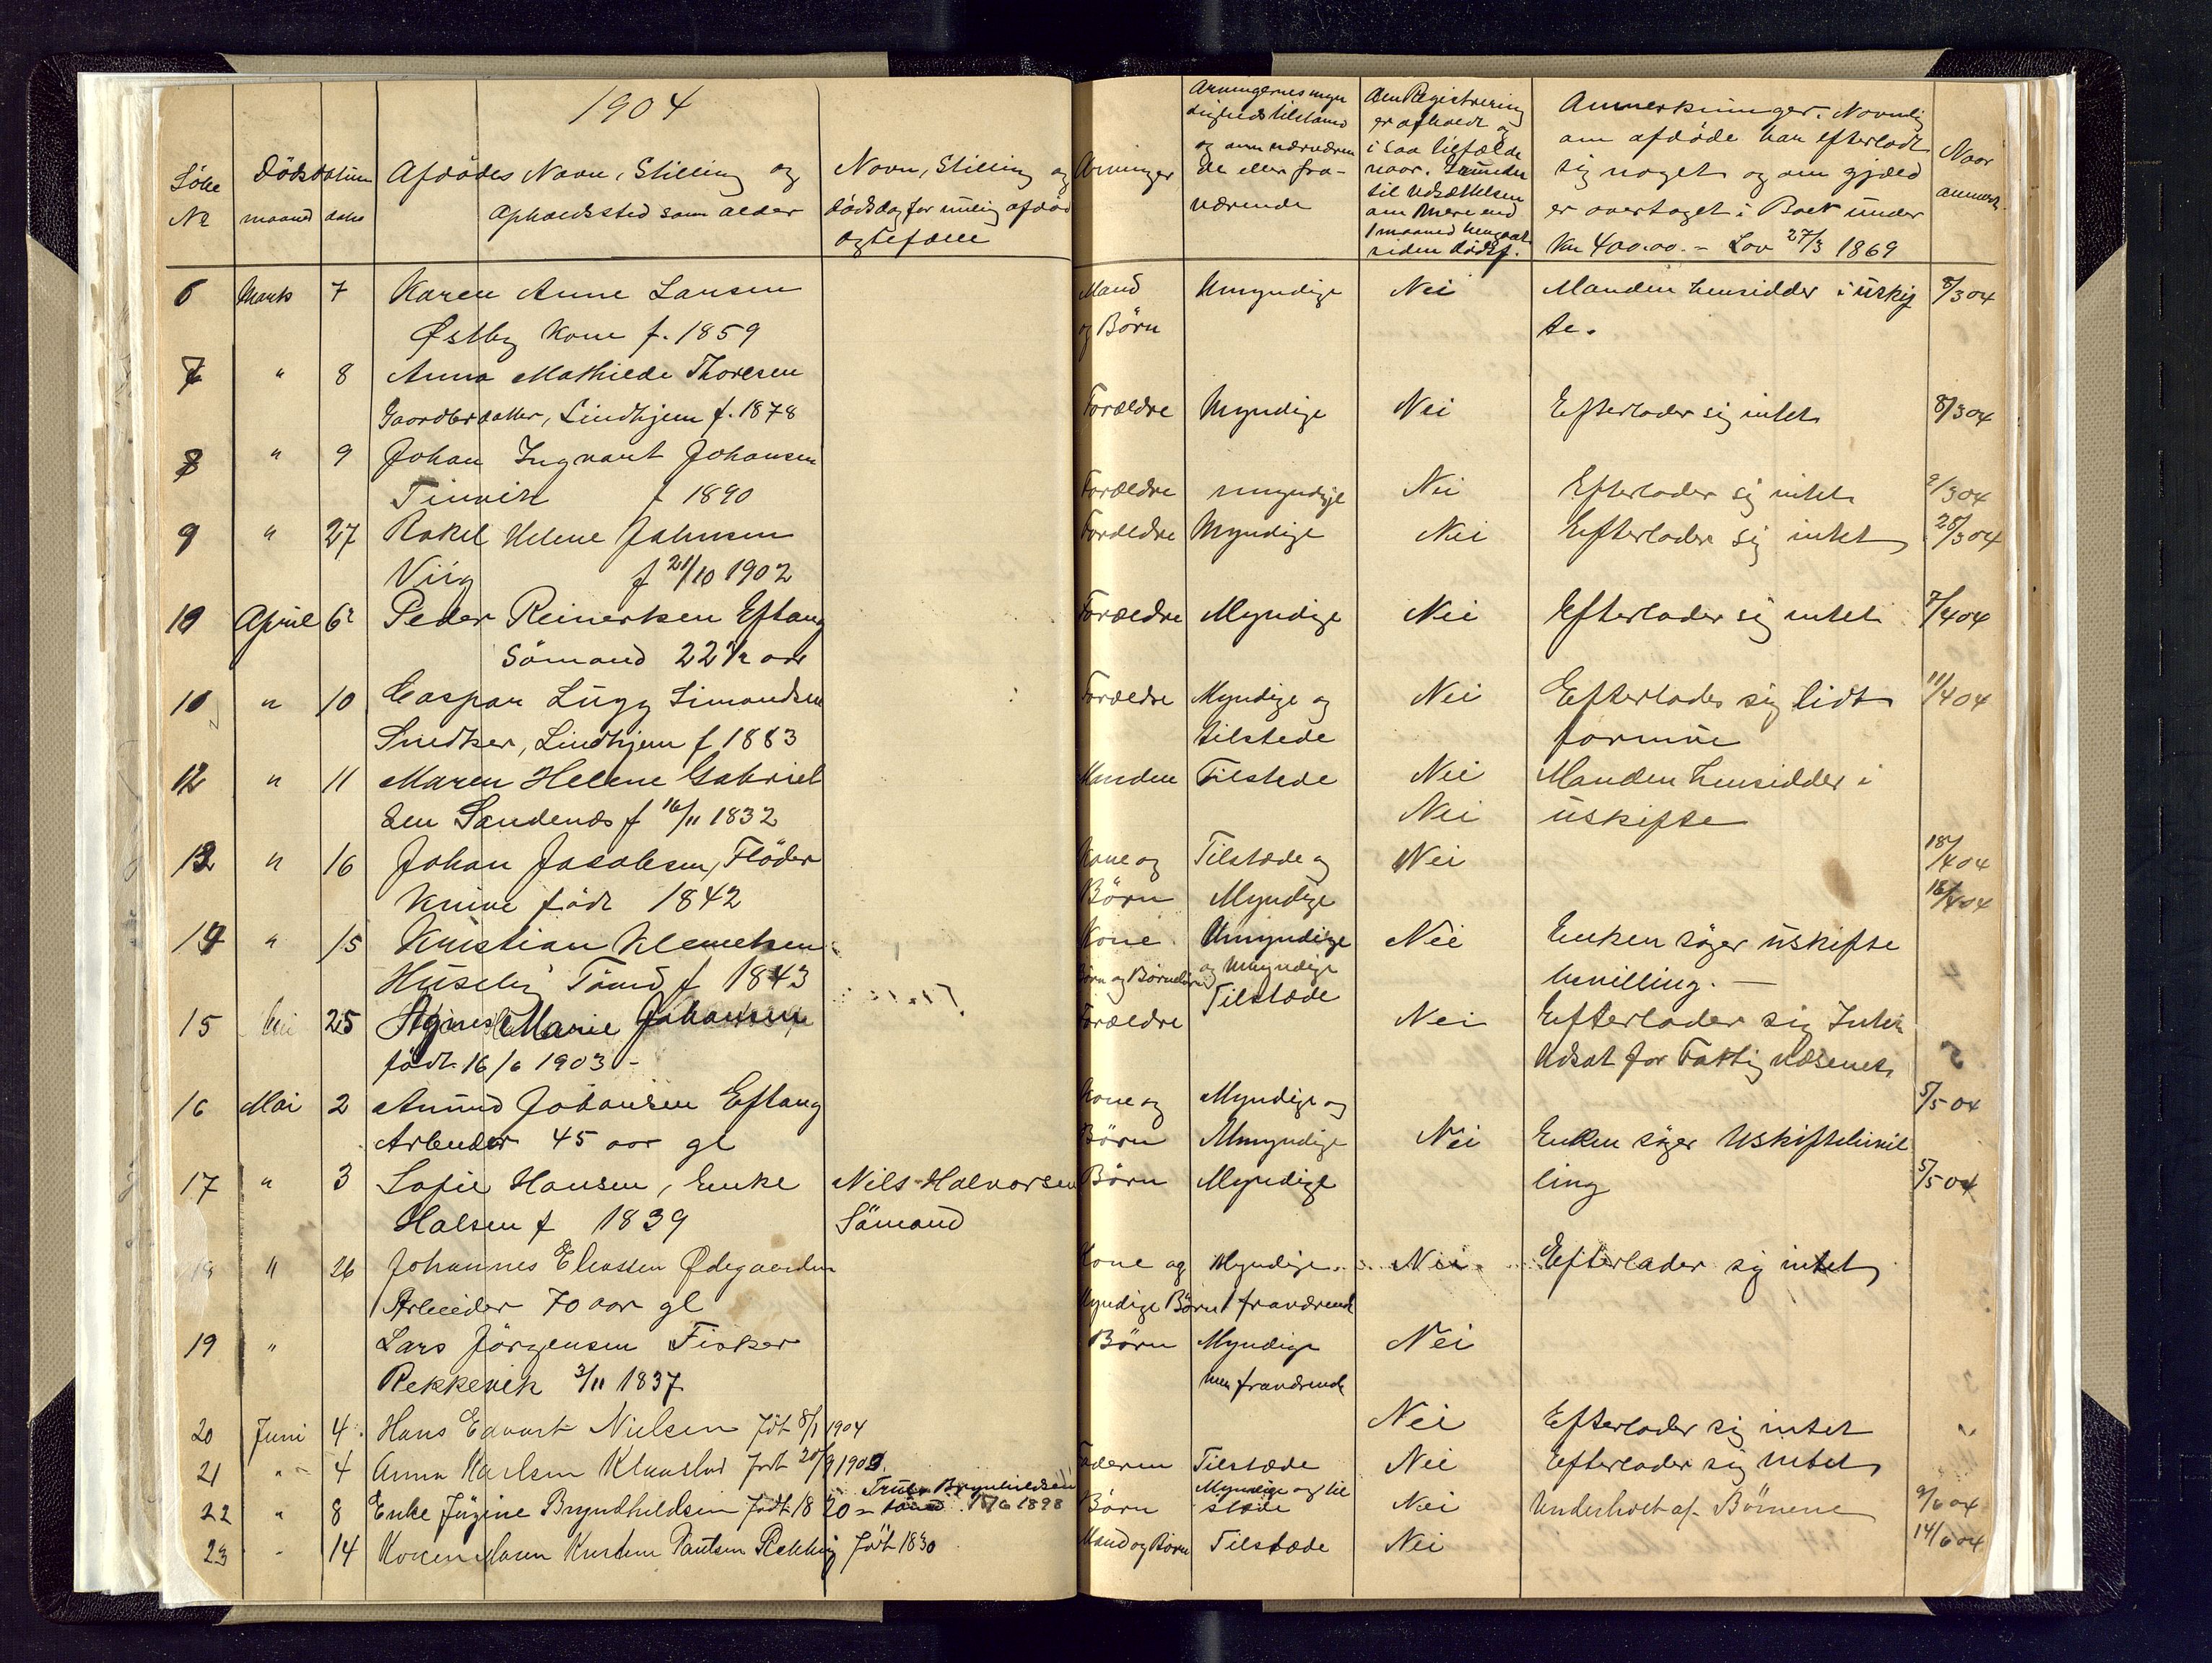 1904
Löbe Dödsdatum Afdödes Navn, Stilling og Navn, Stilling og Arvinger
No maaned dato Opholdssted samt alder dödsdag for mulig afdød
ægtefælle
Arvingernes myn
dighedstilstand
og om nærværen
de eller fra-
værende
Om Registrering
er afholdt og
i saa tilfælde
naar. Grunden
til Udsættelsen
om mere end
1 maaned hengaat
siden dödsf.
Anmerkninger. Navnlig
om afdöde har efterladt
sig noget og om gjæld
er overtaget i Boet under
Kr 400.00. - Lov 27/3 1869
Naar
anmeldt
6 Marts 7 Karen Anne Larsen Mand Umyndige Nei Manden hensidder i uskif 8/3 04
Østby Kone f. 1859 og Börn te.
7 " 8 Anna Mathilde Thoresen
Gaardbrdatter, Lindhjem f. 1878 Forældre Myndige Nei Efterlader sig intet 8/3 04
8 " 9 Johan Ingvart Johansen
Tinvik f 1890 Forældre myndige Nei Efterlader sig intet 9/3 04
9 " 27 Rakel Helene Johnsen Forældre Myndige Nei Efterlader sig intet 28/3 04
Viig f 21/10 1902
10 April 6 Peder Reinertsen Eftang Forældre Myndige Nei Efterlader sig intet 7/4 04
Sömand 22 1/2 aar
10 " 10 Caspar Lugg Simondsen Forældre Myndige og Nei Efterlades sig lidt 11/4 04
Snedker, Lindhjem f 1883 tilstede formue
12 " 11 Maren Helene Gabriel Manden Tilstede Nei Manden hensidder i
sen Sandenes f 16/11 1832 Nei uskifte
13 " 16 Johan Jacobsen, Flöder Kone og Tilstæde og Nei 18/4 04
Knive född 1842 Börn Myndige 18/4 04
14 " 15 Kristian Klemetsen Kone Umyndige Nei Enken söger uskifte
Huseby Tömd f 1843 Börn og Börnebörn og Umyndige bevilling. -
Tilstæde
15 25 Agnes Marie Johansen Forældre Nei Efterlader sig Intet
född 16/6 1903 - Udsat for Fattigvæsenet
16 Mai 2 Amund Johansen Eftang Kone og Myndige og 5/5 04
Arbeider 45 aar gl Börn Umyndige Nei Enken söger Uskiftebevil
17 " 3 Sofie Hansen, Enke Nils Halvorsen Börn Myndige ling 5/5 04
Halsen f 1839 Sömand
18 " 26 Johannes Eliassen Ødegaarden Kone og Myndige Nei Efterlader sig intet
Arbeider 70 aar gl Myndige Börn fraværende
19 " Lars Jörgensen Fisker Börn Myndige Nei
Rekkevik 3/11 1837 men fraværende
20 Juni 4 Hans Edvart Nielsen född 8/1 1904 Nei Efterlader sig intet
21 " 4 Anna Karlsen Klaastad född 20/9 1903. Faderen Tilstæde Nei Efterlader sig intet
22 " 8 Enke Jügine Bryndhildsen född 1820 Truls Brynhildsen 17/6 1898 Börn Myndige og til stæde Nei Underholdt af Börnene 9/6 04
23 - 14 Konen Maren Kristine Paulsen Rekkevig född 1830 Mand og Börn Tilstæde Nei 14/6 04